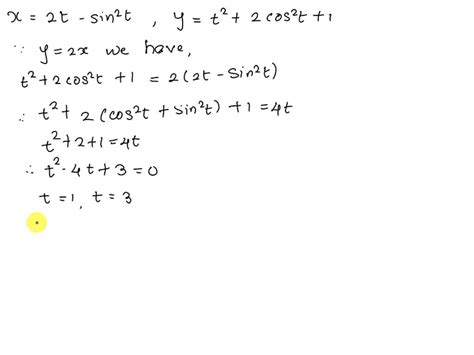 x = 2t - sin²t , y = t² + 2cos²t + 1
∵ y = 2x we have,
t² + 2cos²t + 1 = 2(2t - sin²t)
∴ t² + 2(cos²t + sin²t) + 1 = 4t
t² + 2 + 1 = 4t
∴ t² - 4t + 3 = 0
t = 1, t = 3